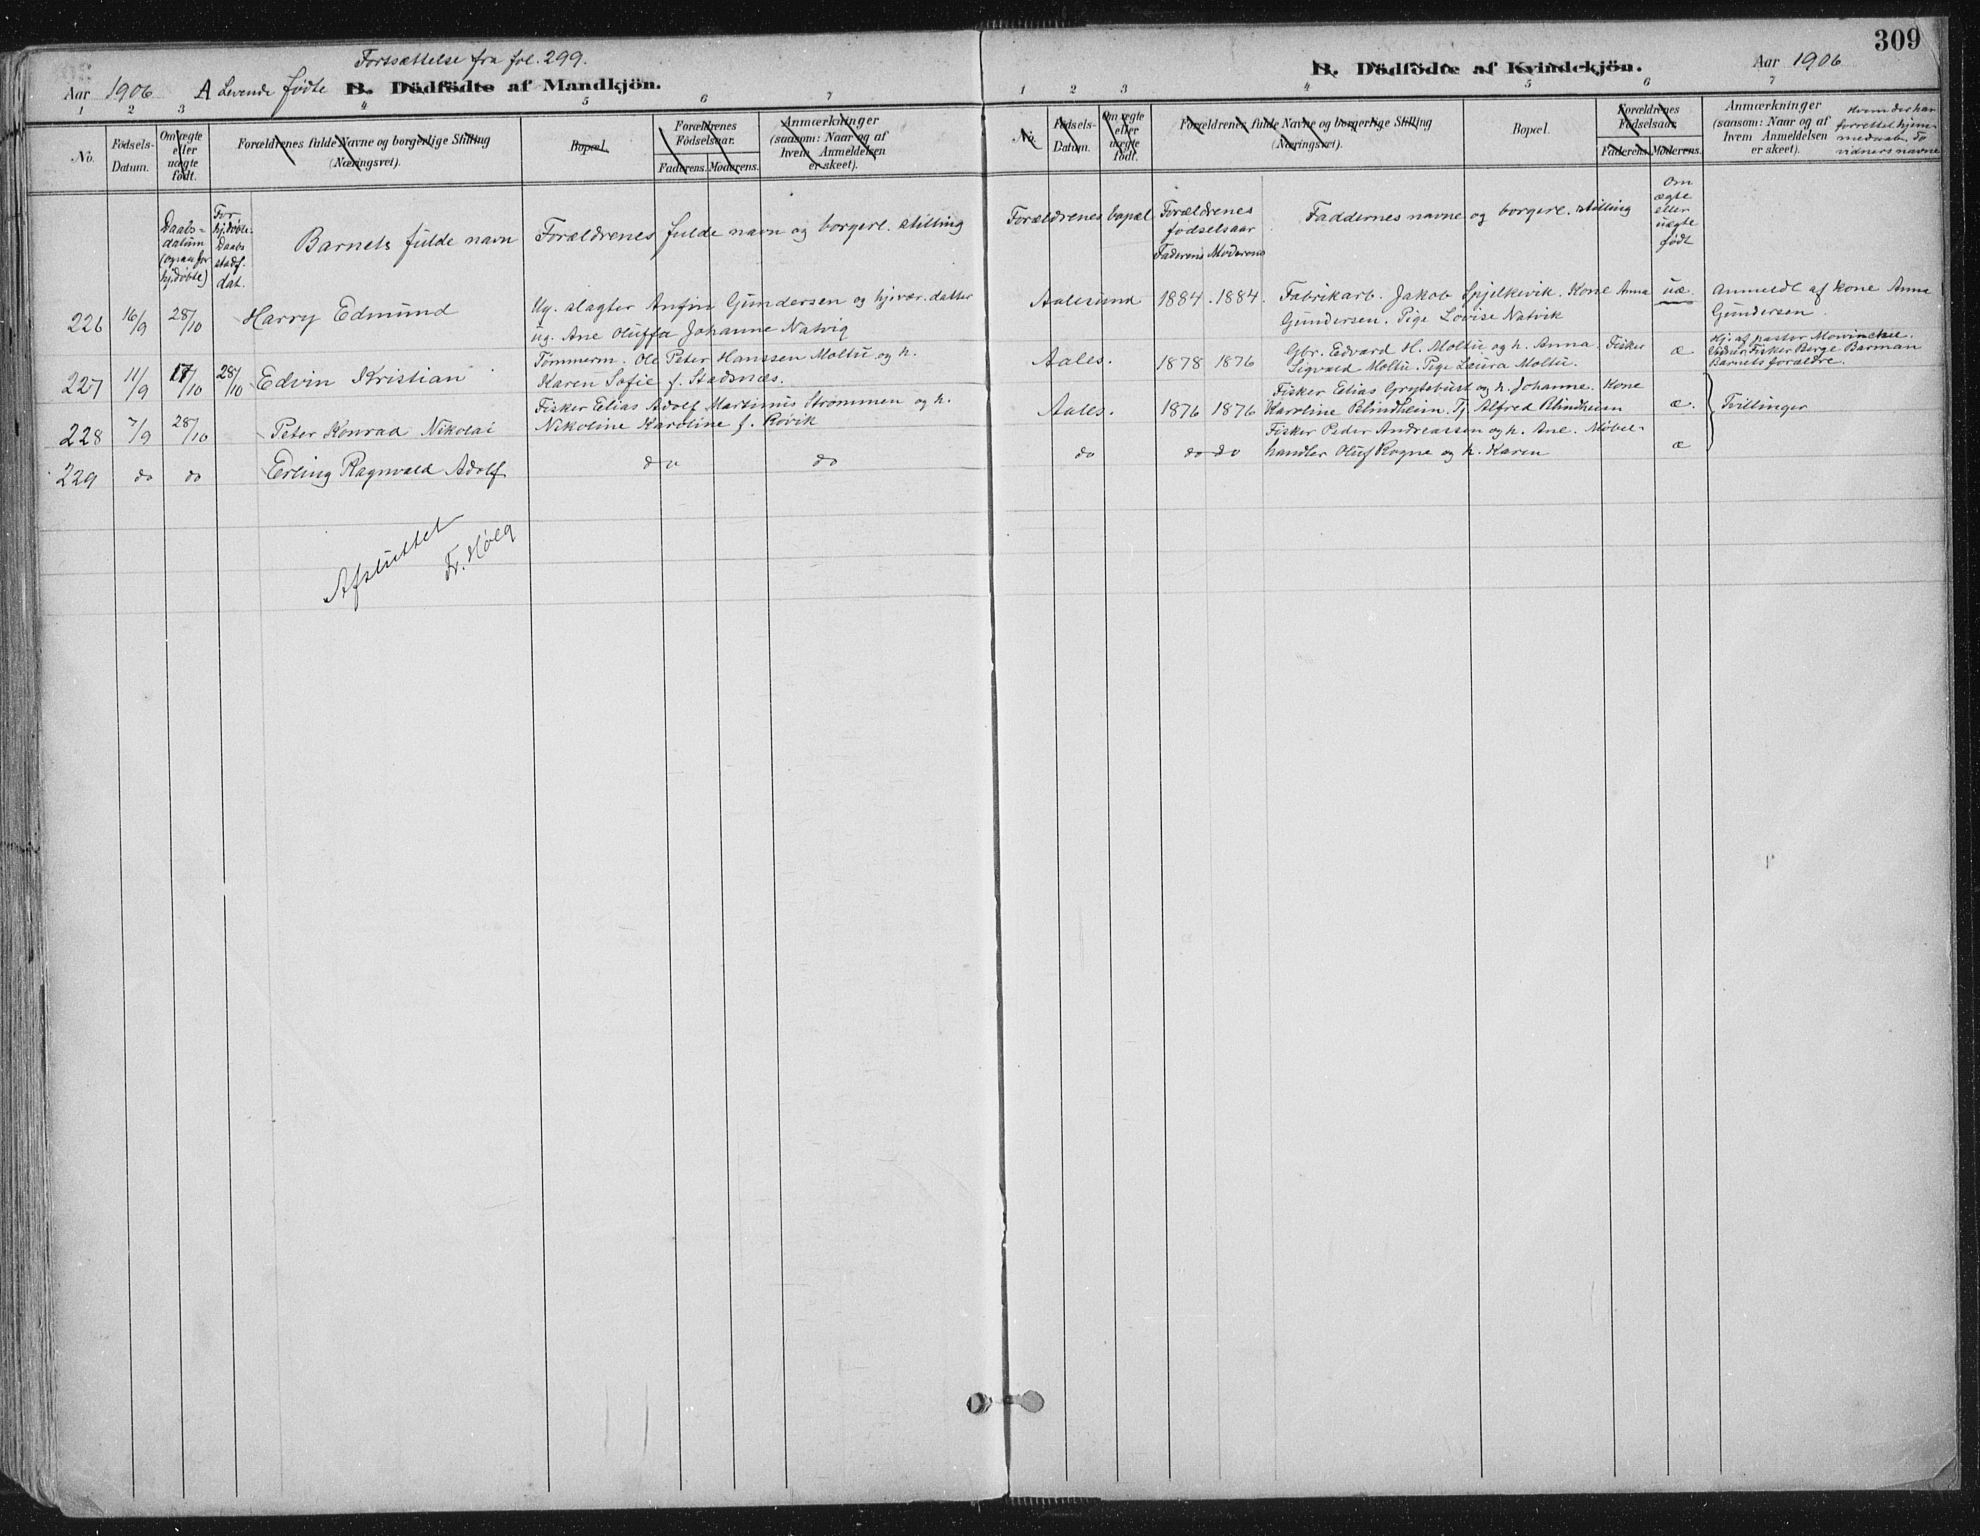 Fortsættelse fra fol. 299.
Aar 1906 A Levende fødte B. Dödfödte af Mandkjön.
1 2 3 4 5 6 7
No.
Födsels-Datum.
Om ægte eller uægte födt.
Forældrenes fulde Navne og borgerlige Stilling (Næringsvei).
Bopæl.
Forældrenes Födselsaar.
Faderens. Moderens.
Anmærkninger (saasom: Naar og af hvem Anmeldelsen er skeet).
Daabs-datum (ogsaa for hj.døbte)
For hj.døbte: Daabs stadf. dat.
Barnets fulde navn
Forældrenes fulde navn og borgerl. stilling
226 16/9 28/10 Harry Edmund
Ug. slagter Anfin Gundersen og hjevær. datter
ug. Ane Oluffa Johanne Natvig
227 11/9 17/10 28/10 Edvin Kristian
Tømmerm. Ole Peter Hanssen Moltu og h.
Karen Sofie f. Stadsnæs.
228 7/9 28/10 Peter Konrad Nikolai
Fisker Elias Adolf Martinus Strømmen og h.
Nikoline Karoline f. Røvik
229 do do Erling Ragnvald Adolf do do
Afsluttet
Fr. Hølg
309
B. Dödfödte af Kvindekjön. Aar 1906
1 2 3 4 5 6 7
No.
Födsels-Datum.
Om ægte eller uægte födt.
Forældrenes fulde Navne og borgerlige Stilling (Næringsvei).
Bopæl.
Forældrenes Födselsaar.
Faderens. Moderens.
Anmærkninger (saasom: Naar og af hvem Anmeldelsen er skeet).
Hvem der har forrettet hjemmedaab. Do vidners navne
Forældrenes bopæl
Forældrenes fødselsaar
Faderens Moderens
Faddernes navne og borgerl. stilling
Om ægte eller uægte født
Aalesund 1884. 1884. Fabrikarb. Jakob Spjelkevik. Kone Anna uæ. Anmeldt af kone Anna
Gundersen. Pige Lovise Natvik Gundersen.
Aales. 1878 1876 Gbr. Edvard H. Moltu og h. Anna. Fisker æ Hj. af pastor Mowinckel.
Sigvald Moltu. Pige Laura Moltu. Vidner: Fisker Berge Barman
Barnets forældre.
Aales. 1876 1876 Fisker Elias Grytebust og h. Johanne. Kone
Karoline Blindheim. Tj. Alfred Blindheim æ. Tvillinger
do do do Fisker Peder Andreassen og h. Ane. Møbel-
handler Oluf Rogne og h. Karen æ